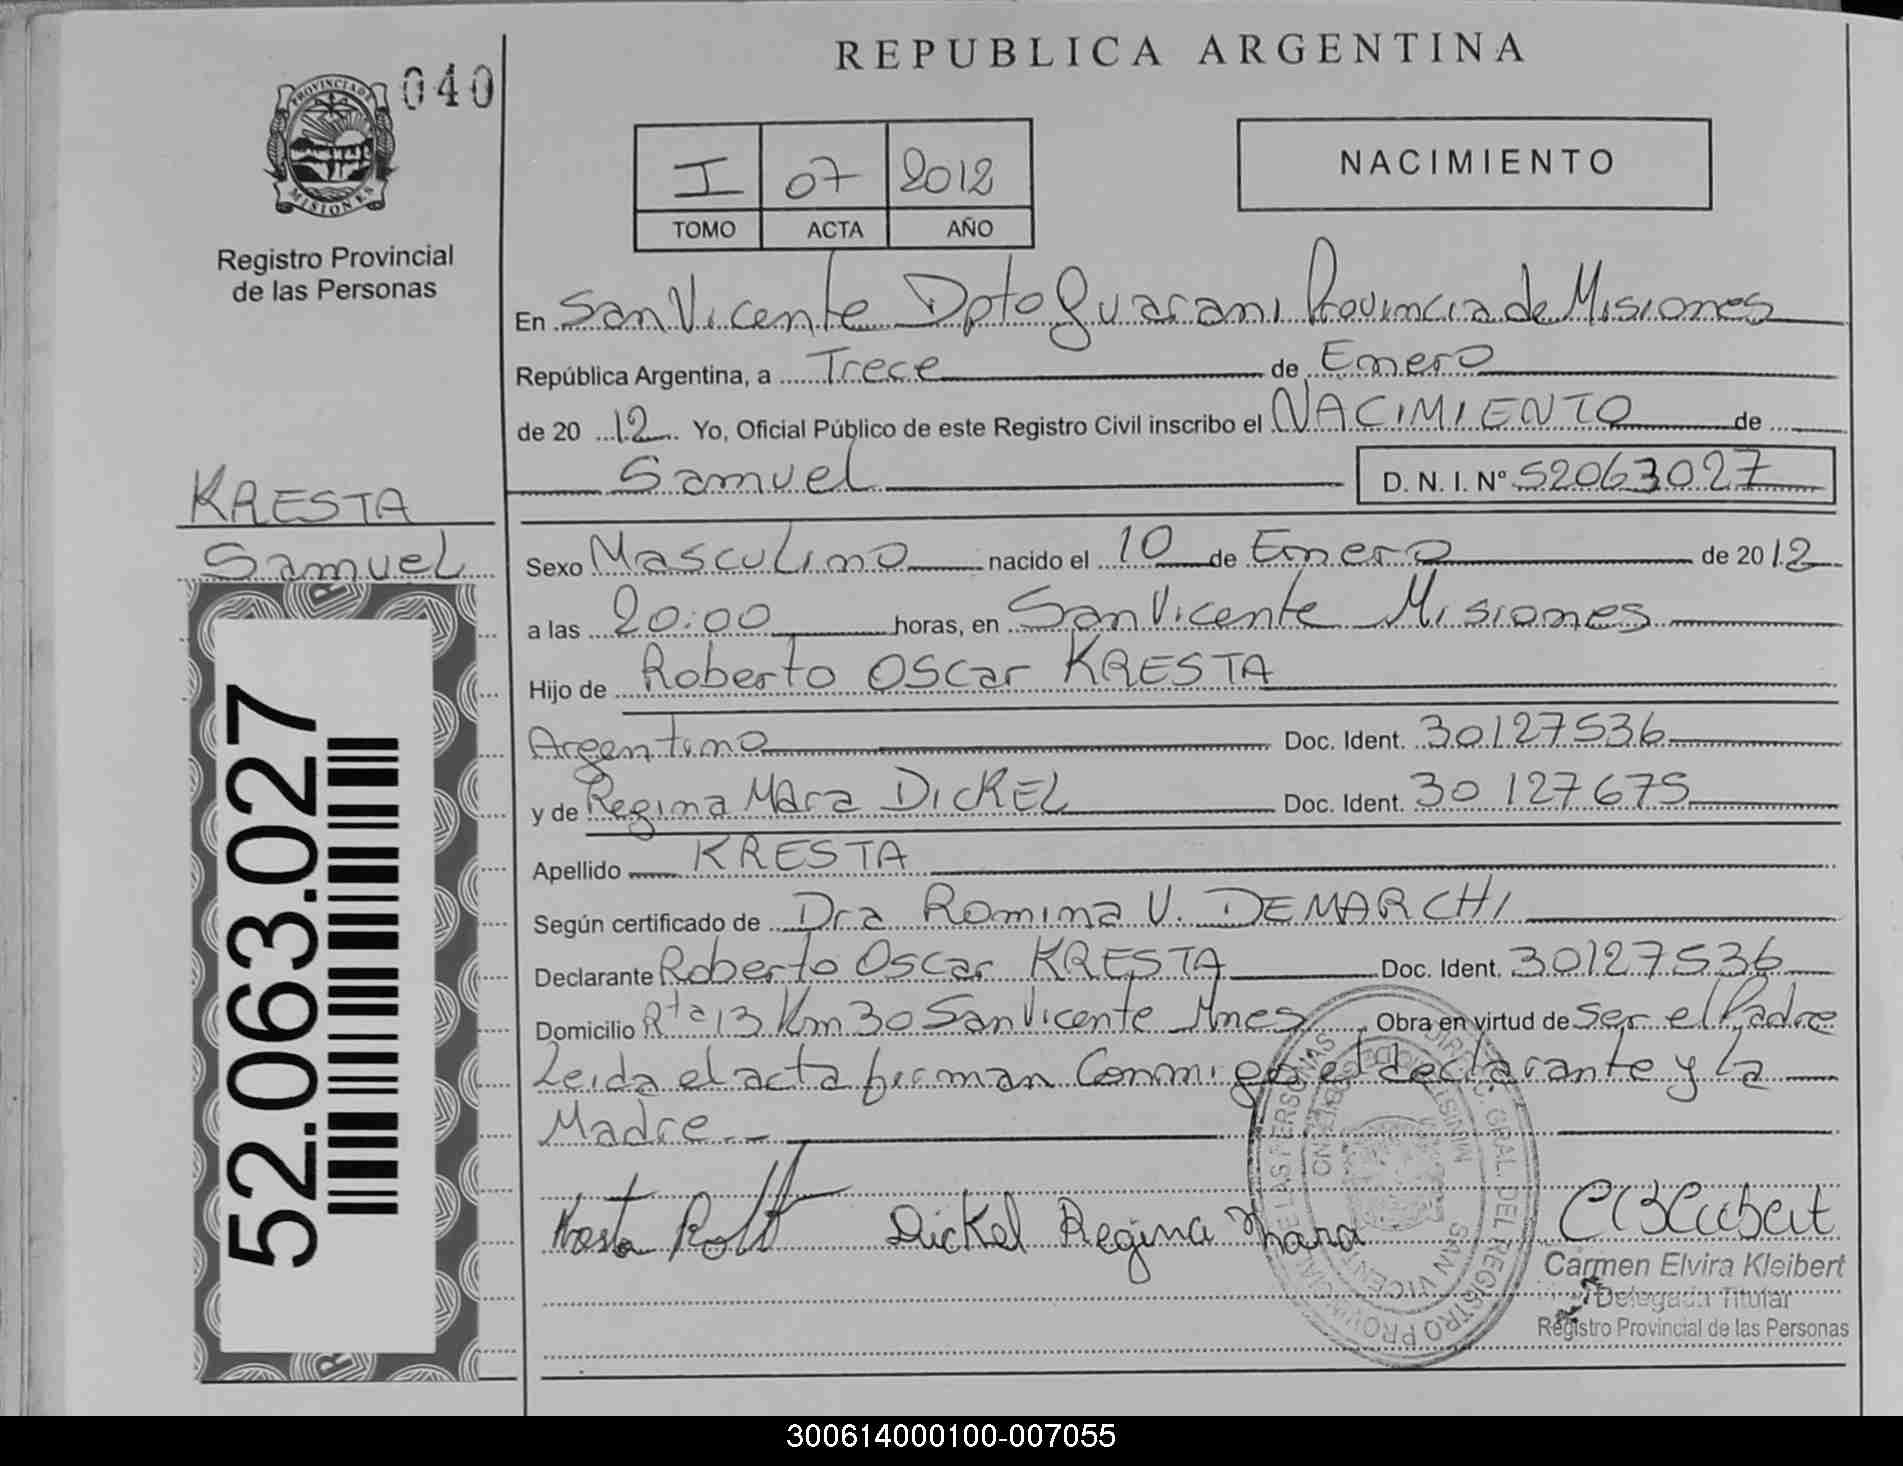 REPUBLICA ARGENTINA
040
PROVINCIA DE MISIONES
Registro Provincial
de las Personas
I 07 2012
TOMO ACTA AÑO
NACIMIENTO
En San Vicente Dpto Guarani Provincia de Misiones
República Argentina, a Trece de Enero
de 2012 Yo, Oficial Público de este Registro Civil inscribo el NACIMIENTO de
Samuel D. N. I. Nº 52063027
KRESTA
Samuel
52.063.027
Sexo Masculino nacido el 10 de Enero de 2012
a las 20:00 horas, en San Vicente Misiones
Hijo de Roberto Oscar KRESTA
Argentino Doc. Ident. 30127536
y de Regina Mara DICKEL Doc. Ident. 30127675
Apellido KRESTA
Según certificado de Dra Romina V. DEMARCHI
Declarante Roberto Oscar KRESTA Doc. Ident. 30127536
Domicilio Rta 13 Km 30 San Vicente Mnes Obra en virtud de Ser el Padre
Leida el acta firman Conmigo el declarante y la
Madre--
Dickel Regina Mara
Carmen Elvira Kleibert
Delegada Titular
Registro Provincial de las Personas
300614000100-007055